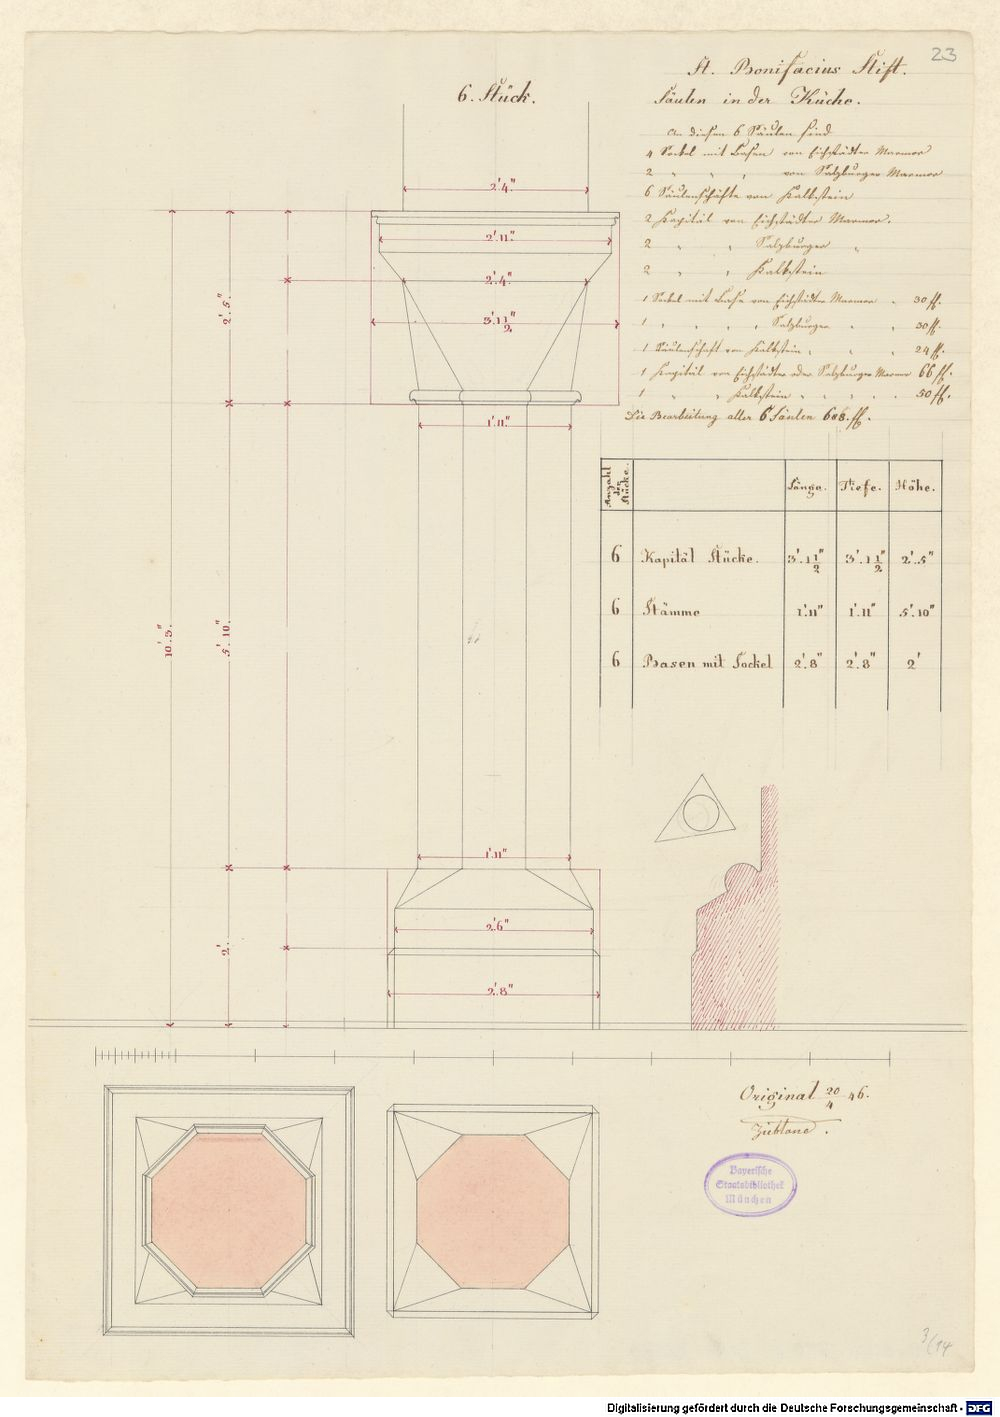 23
St. Bonifacius Stift.
Säulen in der Küche.
6. Stück.
An diesen 6 Säulen sind
4 Sockel mit Basen von Eichstädter Marmor
2 " " " von Salzburger Marmor
6 Säulenschäfte von Kalkstein
2 Kapitäl von Eichstädter Marmor.
2 " " Salzburger "
2 " " Kalkstein
1 Sockel mit Base von Eichstädter Marmor " 30 fl.
1 " " " " Salzburger " " 30 fl.
1 Säulenschaft von Kalkstein " " " 24 fl.
1 Kapitäl von Eichstädter oder Salzburger Marmor 66 fl.
1 " " Kalkstein " " " " 50 fl.
Die Bearbeitung aller 6 Säulen 688. fl.
Anzahl der Stücke. Länge. Tiefe. Höhe.
6 Kapitäl Stücke. 3'.1 1/2" 3'.1 1/2" 2'.5"
6 Stämme 1'.11" 1'.11" 5'.10"
6 Basen mit Sockel 2'.8" 2'.8" 2'
2'.4"
2'.11"
2'.4"
3'.1 1/2"
1'.11"
2'.5"
5'.10"
10'.3"
2'.
1'.11"
2'.6"
2'.8"
Original 20/4 46.
Ziebland.
Bayerische
Staatsbibliothek
München
3/14
Digitalisierung gefördert durch die Deutsche Forschungsgemeinschaft - DFG